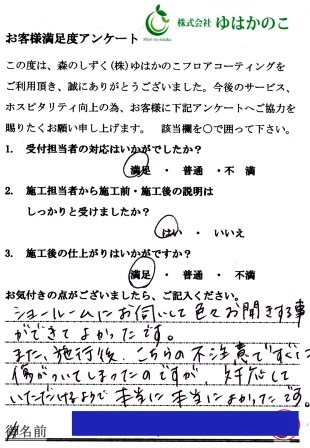 Mori no shizuku
株式会社 ゆはかのこ
お客様満足度アンケート
この度は、森のしずく(株)ゆはかのこフロアコーティングを
ご利用頂き、誠にありがとうございました。今後のサービス、
ホスピタリティ向上の為、お客様に下記アンケートへご協力を
賜りたくお願い申し上げます。 該当欄を○で囲って下さい。
1. 受付担当者の対応はいかがでしたか?
満足 ・ 普通 ・ 不満
2. 施工担当者から施工前・施工後の説明は
しっかりと受けましたか?
はい ・ いいえ
3. 施工後の仕上がりはいかがですか?
満足 ・ 普通 ・ 不満
お気付きの点がございましたら、ご記入ください。
ショールームにお伺いして色々お聞きする事
ができてよかったです。
また、施行後、こちらの不注意ですぐに
傷がついてしまったのですが、対応して
いただけるようで本当に本当によかったです。
御名前